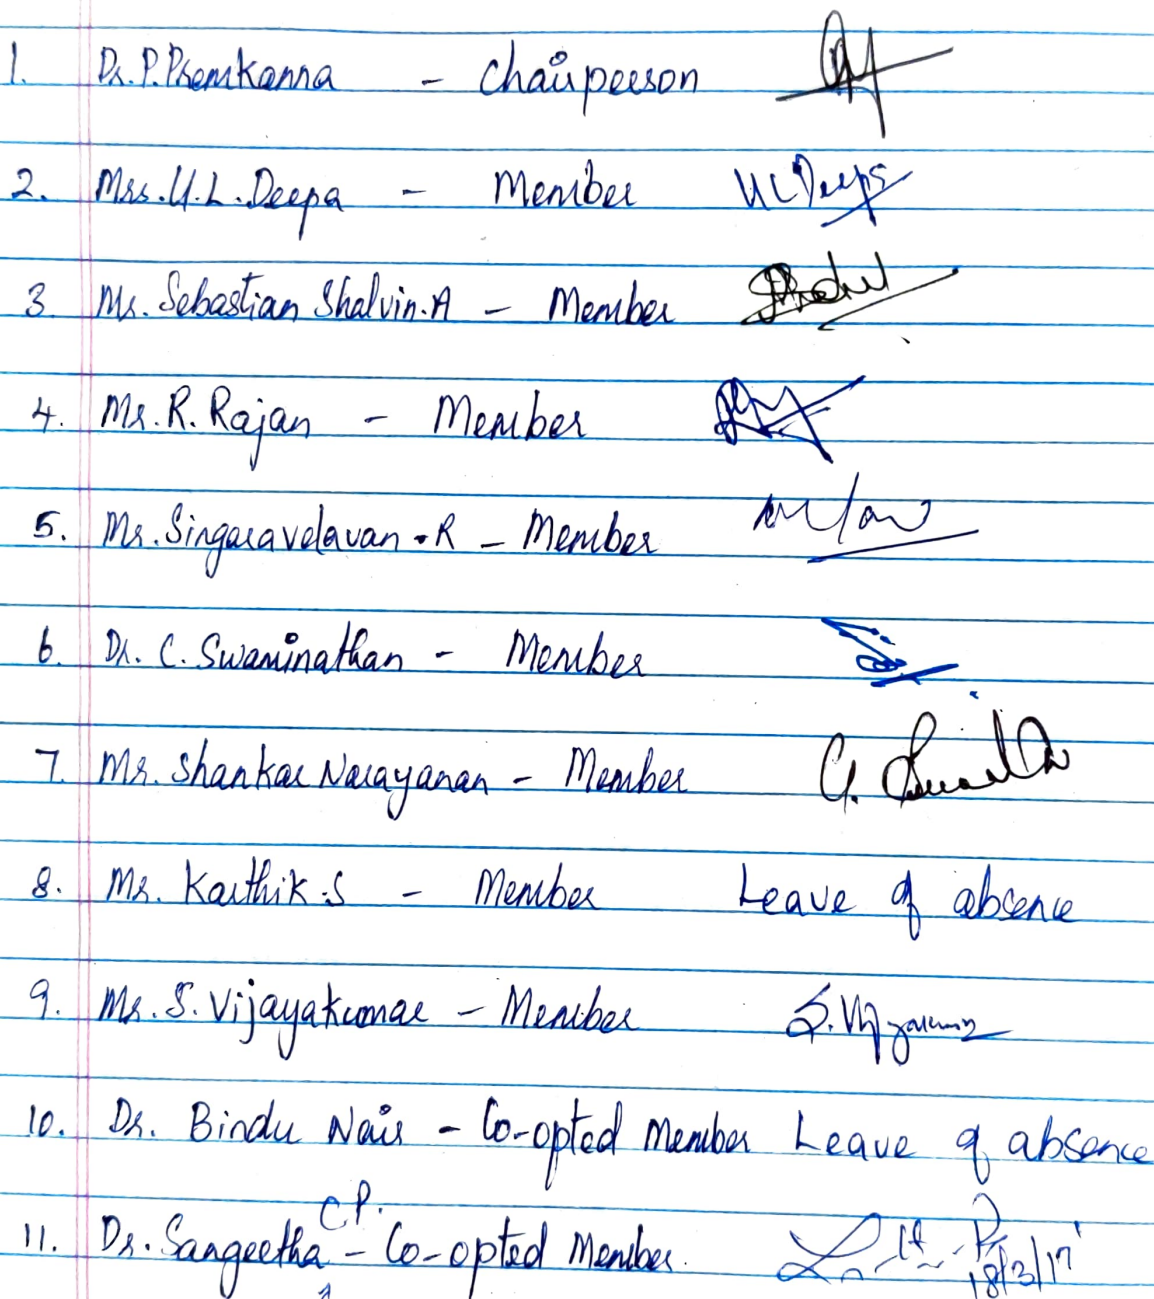 1. Dr. P. Premkanna - Chairperson
2. Mrs. U.L. Deepa - Member UL Deepa
3. Mr. Sebastian Shalvin.A - Member
4. Mr. R. Rajan - Member
5. Mr. Singaravelavan.R - Member
6. Dr. C. Swaminathan - Member
7. Mr. Shankar Narayanan - Member
8. Mr. Karthik.S - Member Leave of absence
9. Mr. S. Vijayakumar - Member S. Vijayakumar
10. Dr. Bindu Nair - Co-opted Member Leave of absence
C.P.
11. Dr. Sangeetha - Co-opted Member.
18/3/17